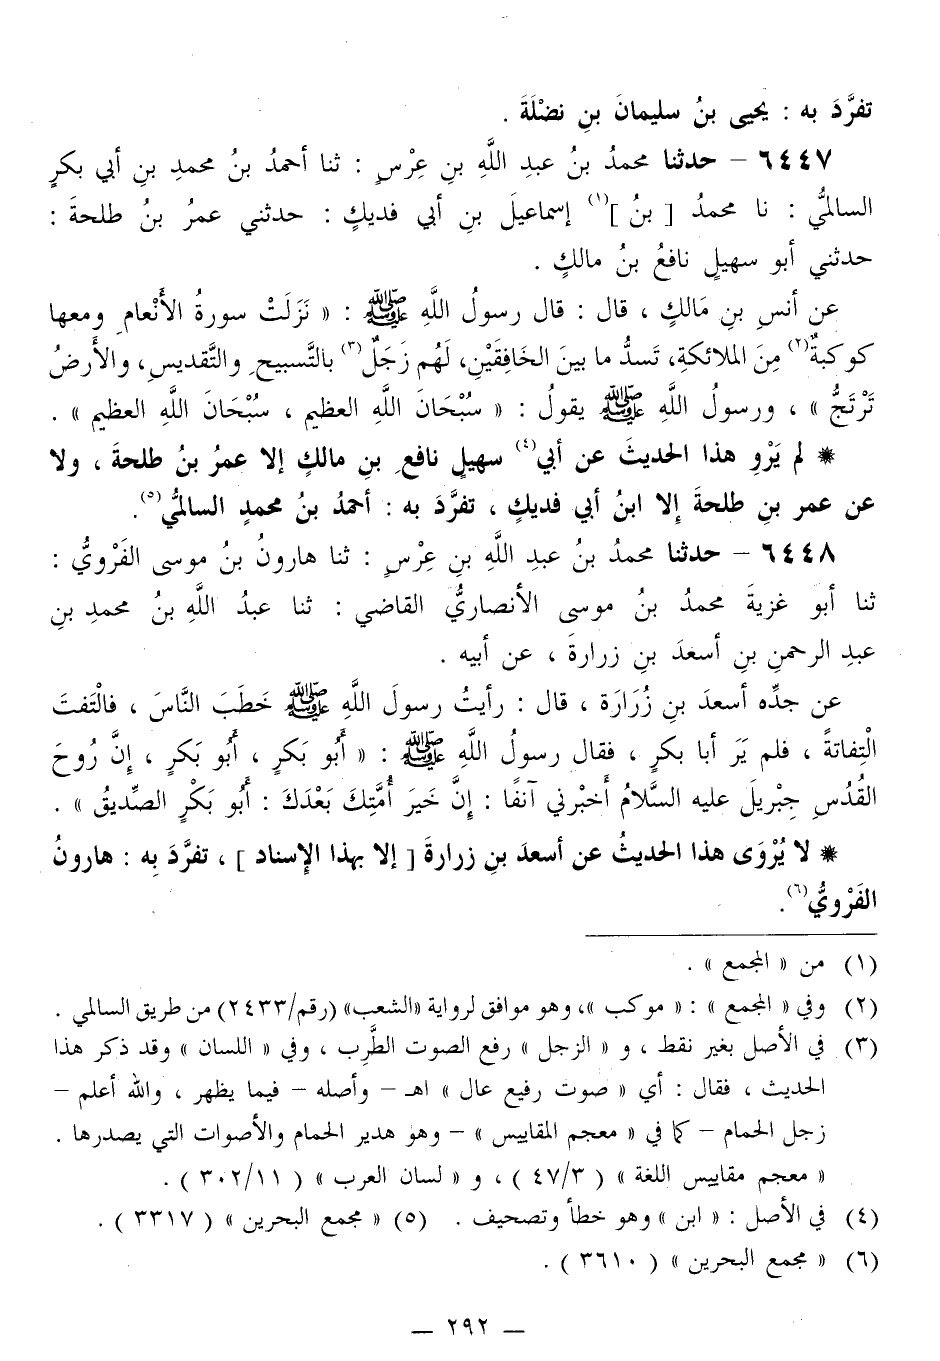 تفرَّدَ به : يحيى بنُ سليمانَ بنِ نضْلَةَ .
٦٤٤٧ – حدثنا محمدُ بنُ عبدِ اللَّهِ بنِ عِرْسٍ : ثنا أحمدُ بنُ محمدِ بنِ أبي بكرٍ
السالميُّ : نا محمدُ [ بنُ ](١) إسماعيلَ بنِ أبي فديكٍ : حدثني عمرُ بنُ طلحةَ :
حدثني أبو سهيلٍ نافعُ بنُ مالكٍ .
عن أنسِ بنِ مَالكٍ ، قال : قال رسولُ اللَّهِ ﷺ : « نَزَلَتْ سورةُ الأَنْعامِ ومعها
كوكبةٌ(٢) مِنَ الملائكةِ، تَسدُّ ما بينَ الخَافِقَيْنِ، لَهُم زَجَلٌ(٣) بالتَّسبيحِ والتَّقديسِ، والأَرضُ
تَرْتَجُّ » ، ورسولُ اللَّهِ ﷺ يقولُ : « سُبْحَانَ اللَّهِ العظيمِ ، سُبْحَانَ اللَّهِ العظيمِ » .
* لم يَرْوِ هذا الحديثَ عن أبي(٤) سهيلٍ نافعِ بنِ مالكٍ إلا عمرُ بنُ طلحةَ ، ولا
عن عمر بنِ طلحةَ إلا ابنُ أبي فديكٍ ، تفرَّدَ به : أحمدُ بنُ محمدٍ السالميُّ(٥).
٦٤٤٨ – حدثنا محمدُ بنُ عبدِ اللَّهِ بنِ عِرْسٍ : ثنا هارونُ بنُ موسى الفَرْويُّ :
ثنا أبو غزيةَ محمدُ بنُ موسى الأنصاريُّ القاضي : ثنا عبدُ اللَّهِ بنُ محمدِ بنِ
عبدِ الرحمنِ بنِ أسعدَ بنِ زرارةَ ، عن أبيه .
عن جدِّه أسعدَ بنِ زُرَارَة ، قال : رأيتُ رسولَ اللَّهِ ﷺ خَطَبَ النَّاسَ ، فالْتَفتَ
الْتِفاتةً ، فلم يَرَ أبا بكرٍ ، فقال رسولُ اللَّهِ ﷺ : « أَبُو بَكرٍ ، أَبُو بَكرٍ ، إِنَّ رُوحَ
القُدُسِ جِبْريلَ عليه السَّلامُ أَخبْرني آنفًا : إِنَّ خَيرَ أُمَّتِكَ بَعْدَكَ : أَبُو بَكْرٍ الصِّديقُ » .
* لا يُرْوَى هذا الحديثُ عن أسعدَ بنِ زرارةَ [ إلا بهذا الإِسناد ] ، تفرَّدَ بِه : هارونُ
الفَرْويُّ(٦).
(١) من « المجمع » .
(٢) وفي « المجمع » : « موكب »، وهو موافق لرواية «الشعب» (رقم/٢٤٣٣) من طريق السالمي .
(٣) في الأصل بغير نقط ، و « الزجل » رفع الصوت الطَّرِب ، وفي « اللسان » وقد ذكر هذا
الحديث ، فقال : أي « صوت رفيع عال » اهـ – وأصله – فيما يظهر ، والله أعلم –
زجل الحمام – كما في « معجم المقاييس » – وهو هدير الحمام والأصوات التي يصدرها .
« معجم مقاييس اللغة » ( ٤٧/٣ ) ، و « لسان العرب » ( ٣٠٢/١١ ) .
(٤) في الأصل : « ابن » وهو خطأ وتصحيف . (٥) « مجمع البحرين » ( ٣٣١٧ ) .
(٦) « مجمع البحرين » ( ٣٦١٠ ) .
— ٢٩٢ —